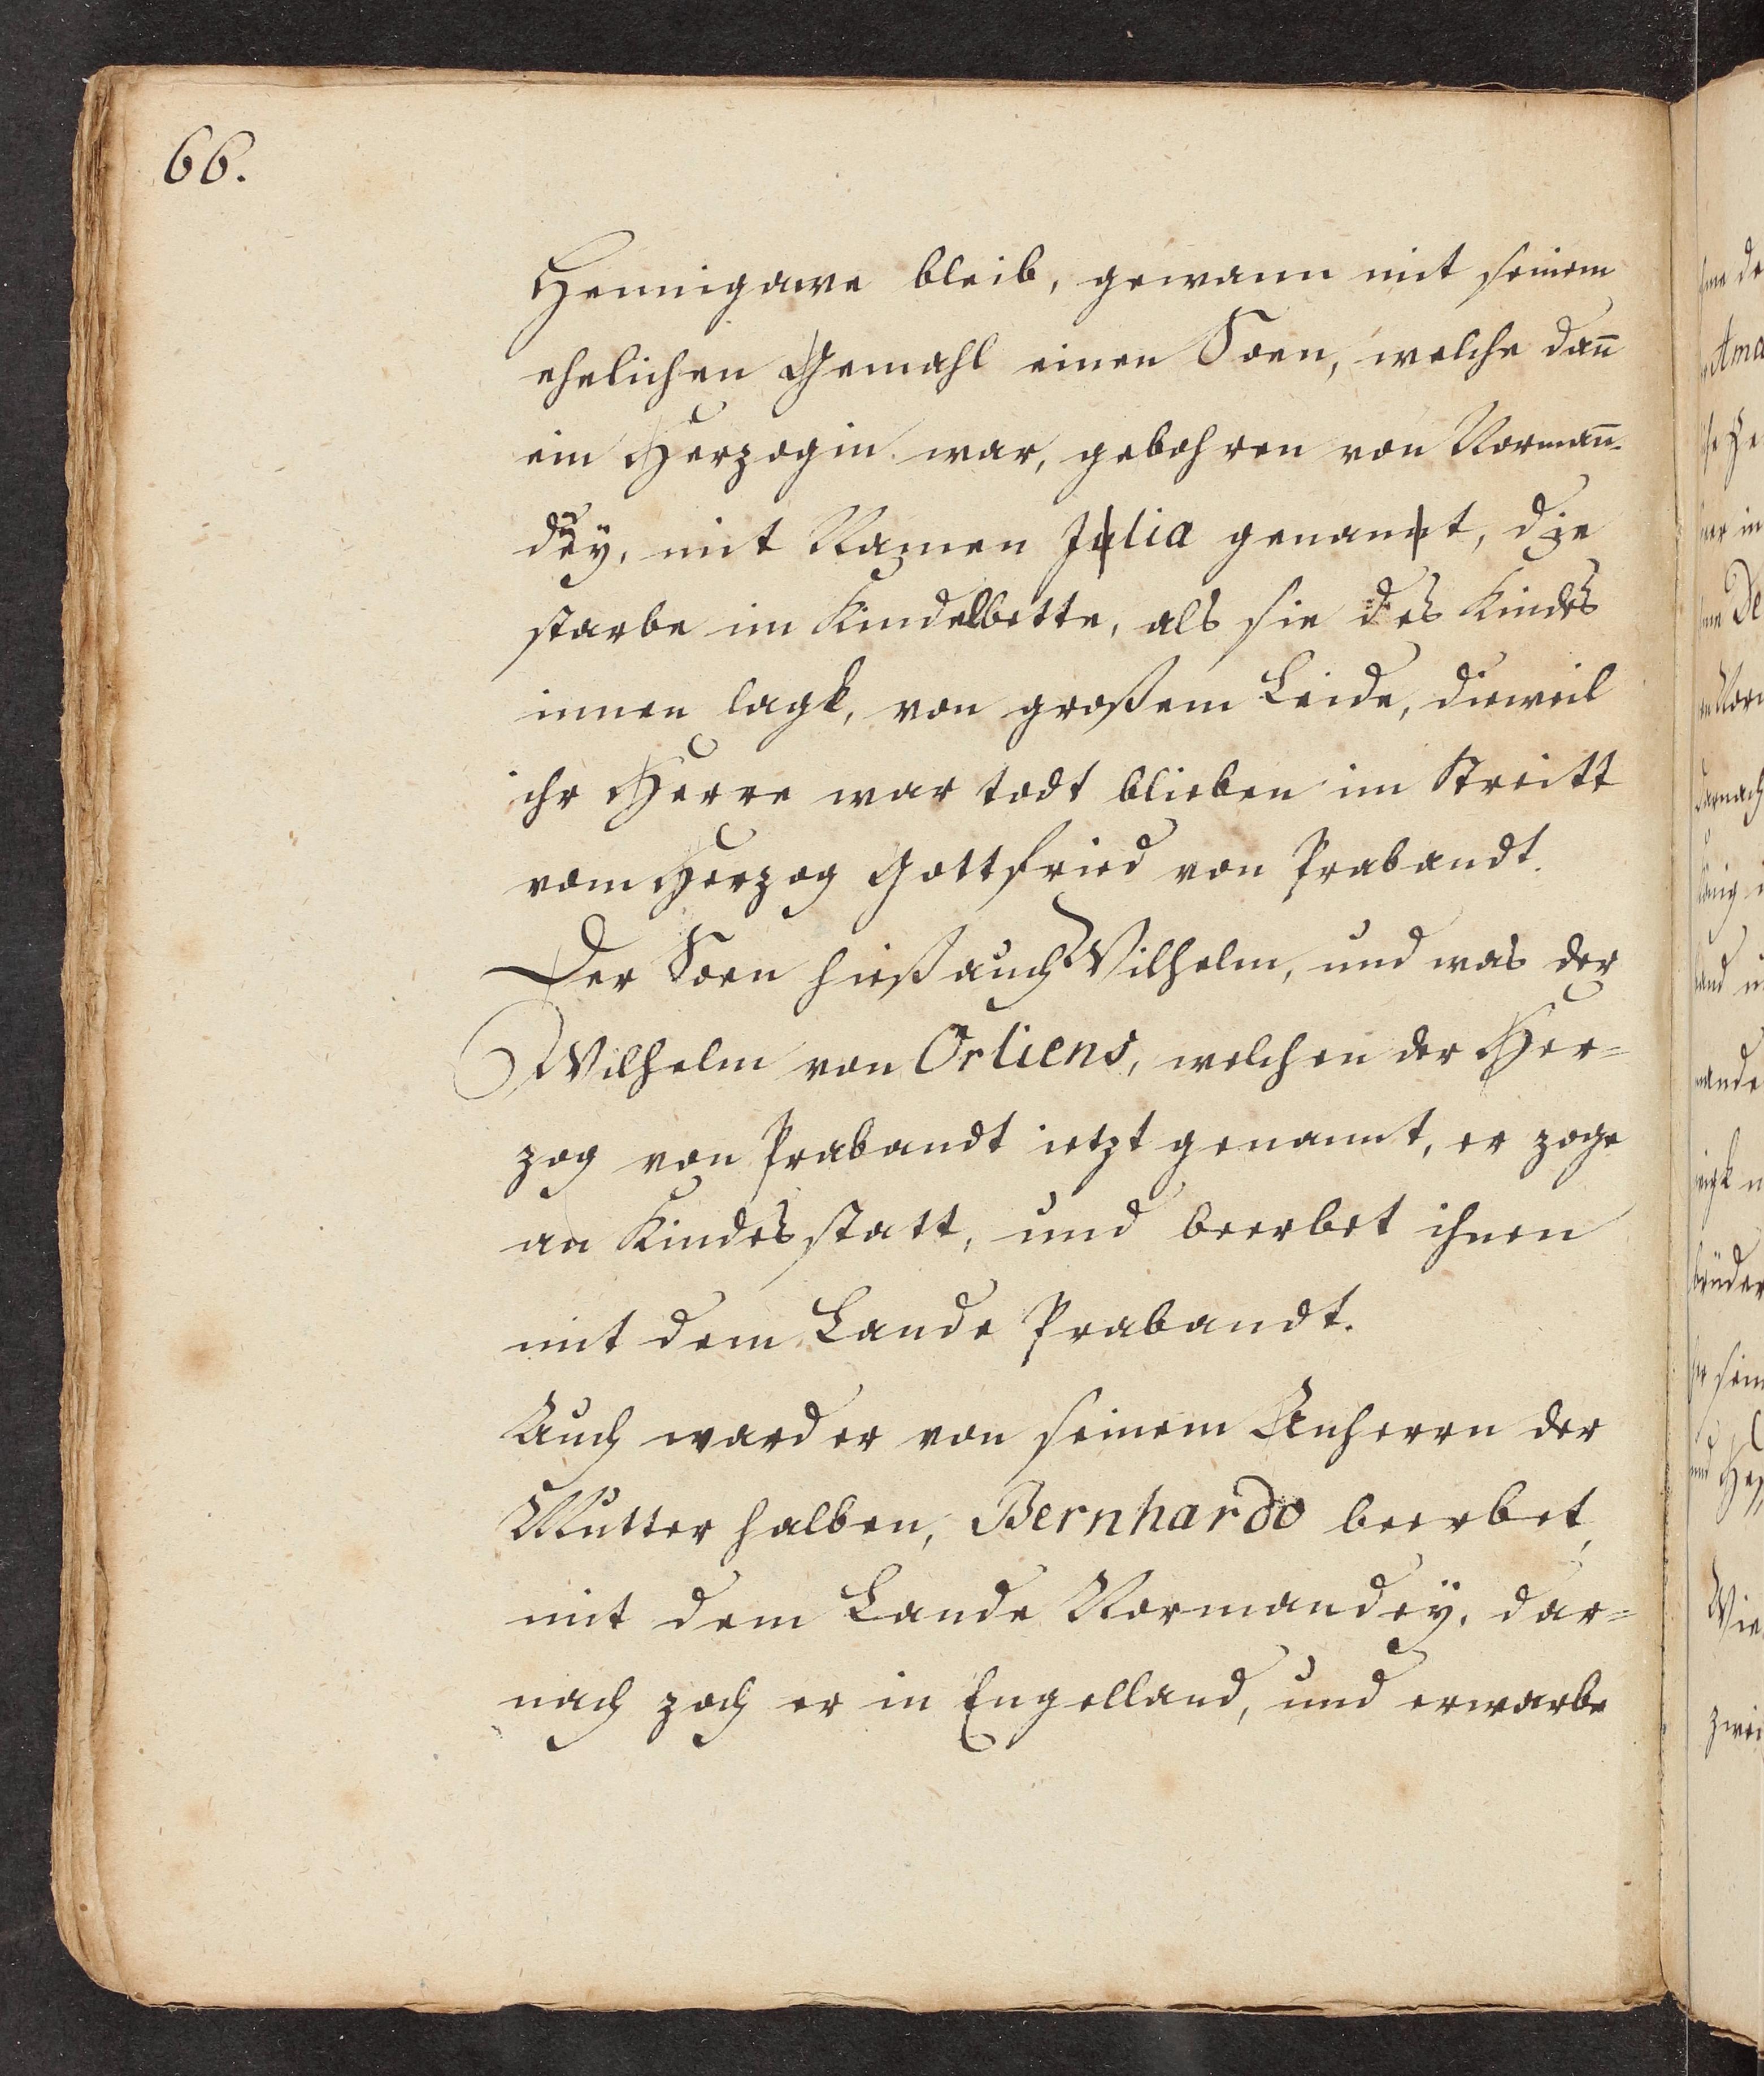 66.
Hennigawe bleib, gewann mit seinem
ehelichen Gemahl einen Soen, welche dan̄
ein Herzogin war, gebohren von Norman̄-
deÿ, mit Namen Julia genannt, die
starbe im Kindelbette, als sie des Kindes
innen lagk, von großem Leide, dieweil
ihr Herre war todt blieben im Streitt
vom Herzog Gottfried von Prabandt.
Der Soen hieß auch Wilhelm, und was der
Wilhelm von Orliens, welchen der Her=
zog von Prabandt ietzt genannt, er zoge
an Kindes statt, und beerbet ihnen
mit dem Lande Prabandt.
Auch ward er von seinem Anherrn der
Mutter halben, Bernhardo beerbet,
mit dem Lande Normandeÿ, dar=
nach zoch er in Engelland, und erwarbe